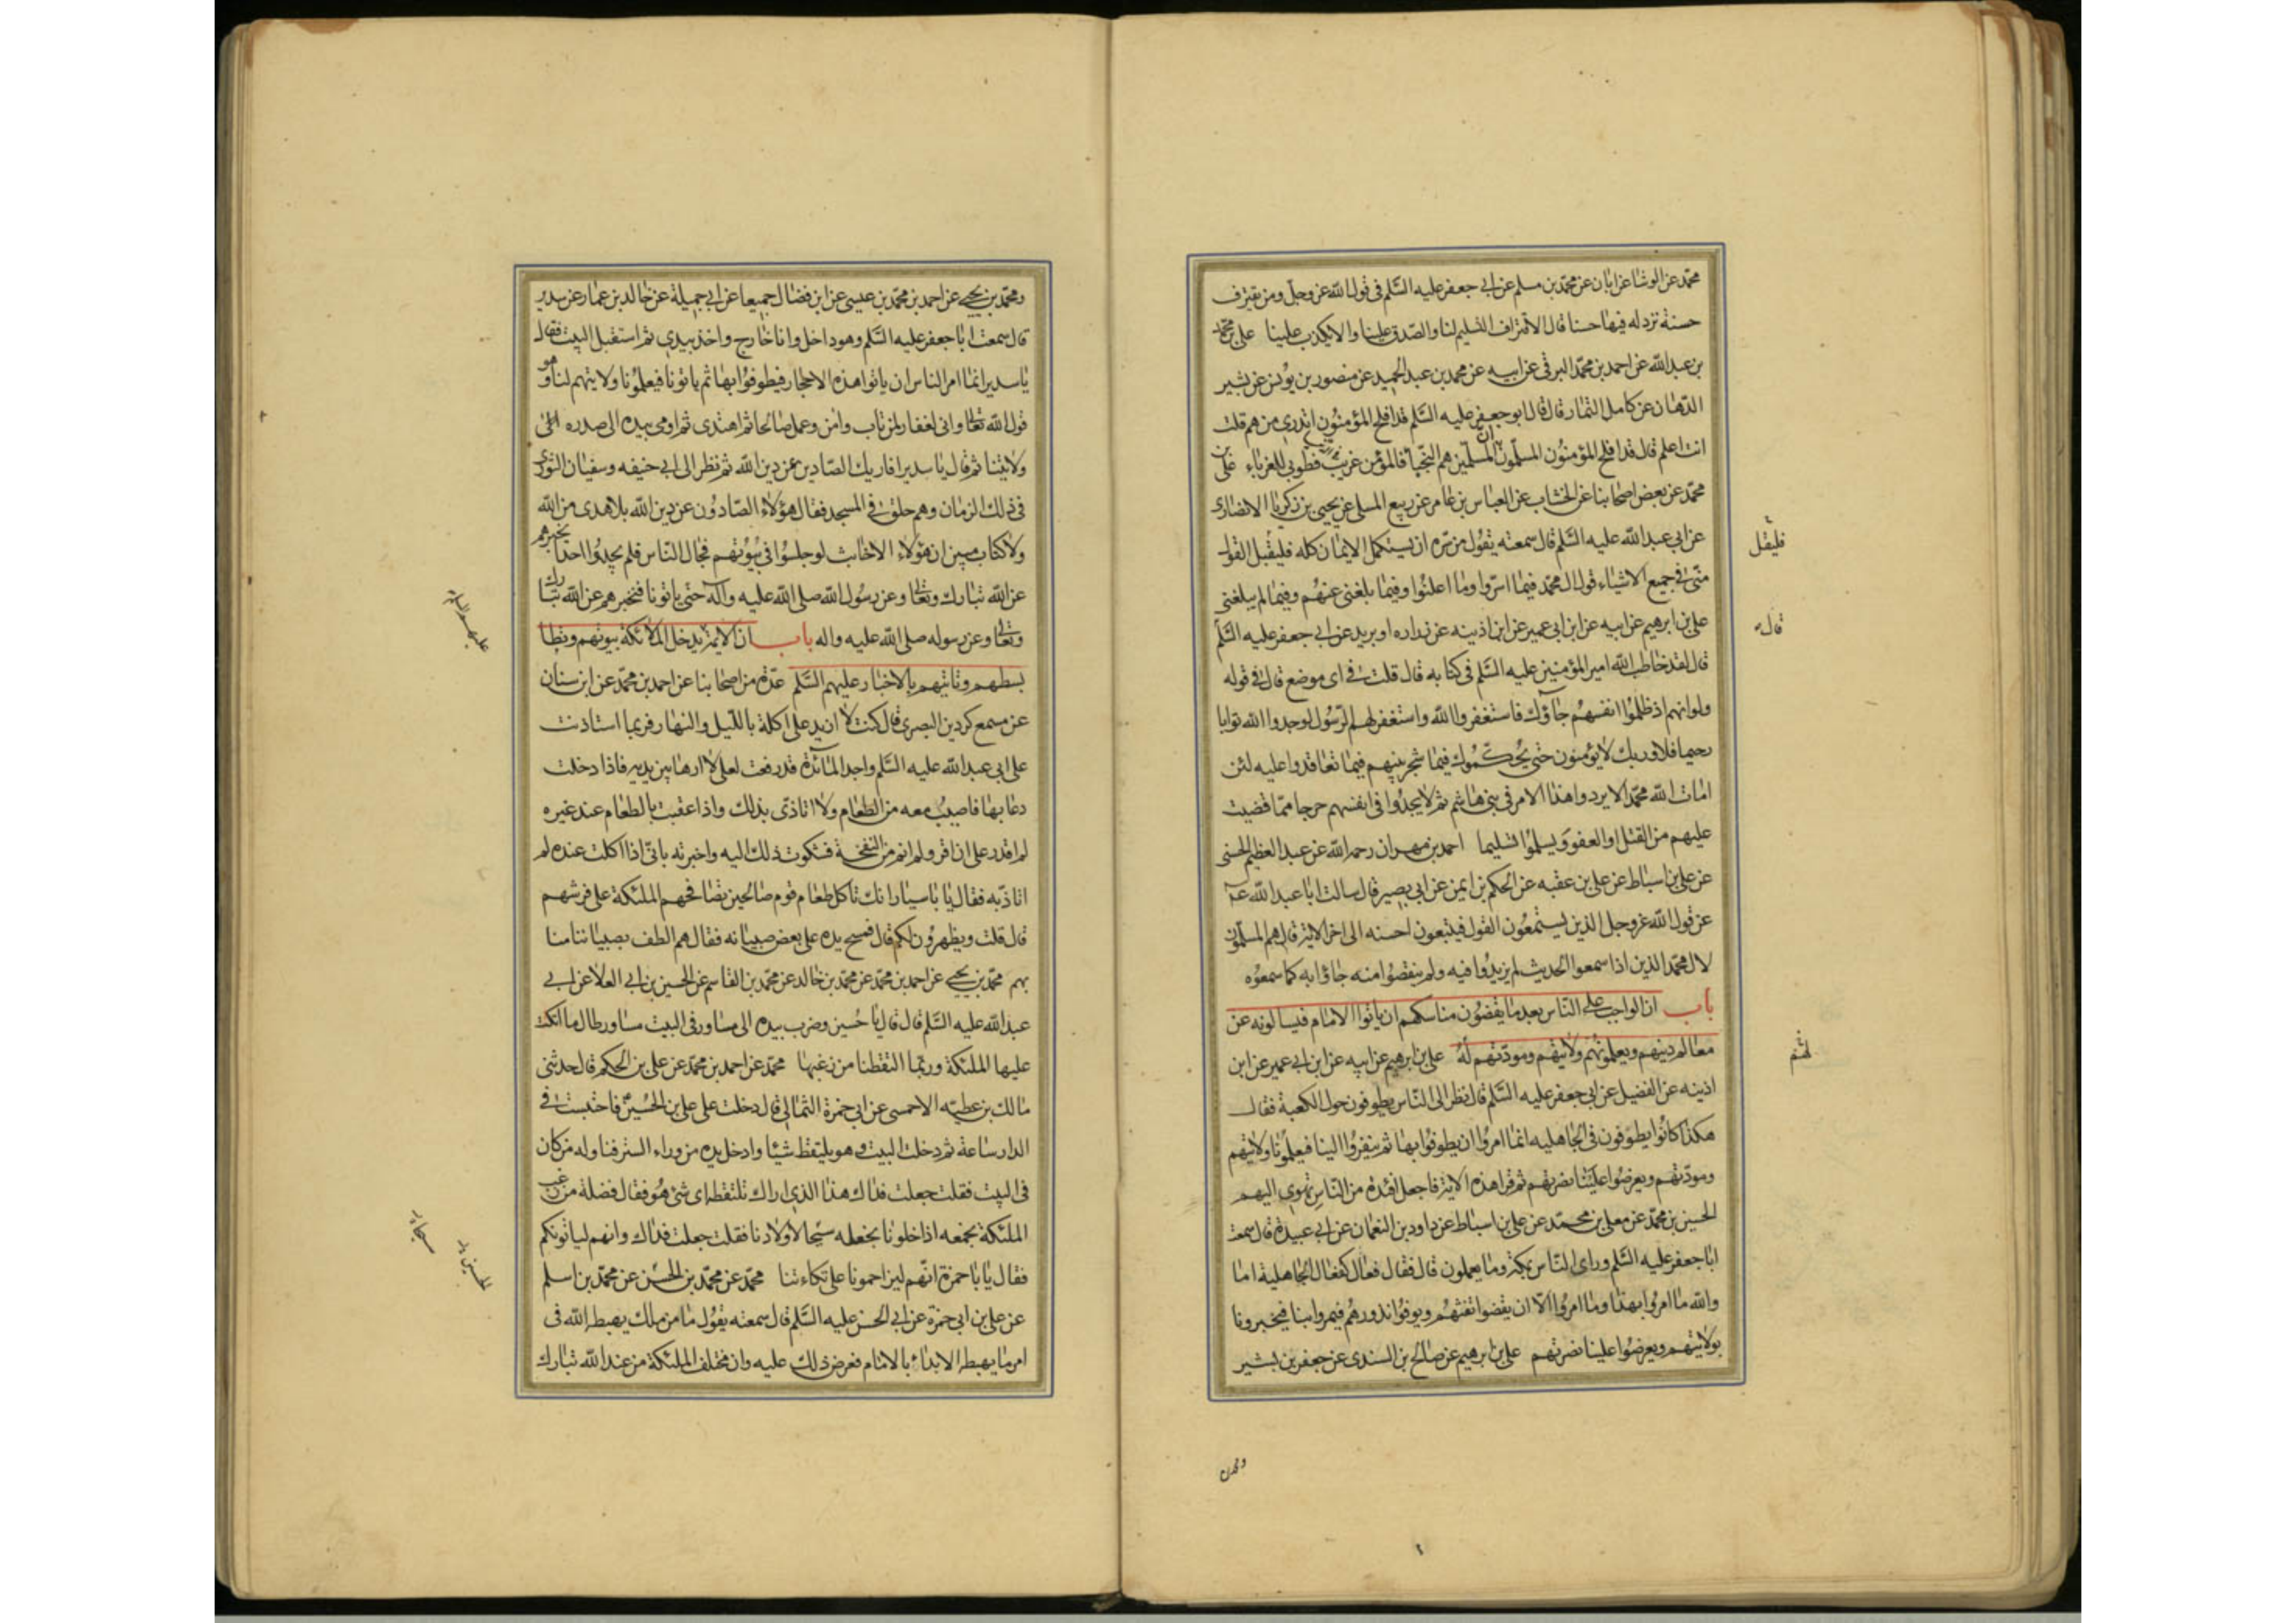 محمد عن الوشا عن ابان عن محمد بن مسلم عن ابي جعفر عليه السلم في قول الله عز وجل ومن يقترف
حسنة نزد له فيها حسنا قال الاقتراف التسليم لنا والصدق علينا والا يكذب علينا علي بن محمد
بن عبد الله عن احمد بن محمد البرقي عن ابيه عن محمد بن عبد الحميد عن منصور بن يونس عن بشير
الدهان عن كامل التمار قال قال ابو جعفر عليه السلم قد افلح المؤمنون اتدري من هم قلت
انت اعلم قال قد افلح المؤمنون المسلمون ان المسلمين هم النجبا فالمؤمن غريب فطوبى للغرباء علي بن
محمد عن بعض اصحابنا عن الخشاب عن العباس بن عامر عن ربيع المسلي عن يحيى بن زكريا الانصاري
عن ابي عبد الله عليه السلم قال سمعته يقول من سره ان يستكمل الايمان كله فليقبل القول
منى في جميع الاشياء قول ال محمد فيما اسروا وما اعلنوا وفيما بلغني عنهم وفيما لم يبلغني
علي بن ابرهيم عن ابيه عن ابن ابي عمير عن ابن اذينه عن زراره او بريد عن ابي جعفر عليه السلم
قال لقد خاطب الله امير المؤمنين عليه السلم في كتابه قال قلت في اى موضع قال في قوله
ولو انهم اذ ظلموا انفسهم جاؤك فاستغفروا الله واستغفر لهم الرسول لوجدوا الله توابا
رحيما فلا وربك لا يؤمنون حتى يحكموك فيما شجر بينهم فيما تعاقدوا عليه لئن
امات الله محمدا لا يردوا هذا الامر في بني هاشم ثم لا يجدوا في انفسهم حرجا مما قضيت
عليهم من القتل او العفو ويسلموا تسليما احمد بن مهران رحمه الله عن عبد العظيم الحسني
عن علي بن اسباط عن علي بن عقبه عن الحكم بن ايمن عن ابي بصير قال سالت ابا عبد الله ع
عن قول الله عز وجل الذين يستمعون القول فيتبعون احسنه الى اخر الاية قال هم المسلمون
لال محمد الذين اذا سمعوا الحديث لم يزيدوا فيه ولم ينقصوا منه جاؤا به كما سمعوه
باب ان الواجب على الناس بعد ما يقضون مناسكهم ان ياتوا الامام فيسالونه عن
معالم دينهم ويعلمونهم ولايتهم ومودتهم له علي بن ابرهيم عن ابيه عن ابن ابي عمير عن ابن
اذينه عن الفضيل عن ابي جعفر عليه السلم قال نظر الى الناس يطوفون حول الكعبة فقال
هكذا كانوا يطوفون في الجاهليه انما امروا ان يطوفوا بها ثم ينفروا الينا فيعلمونا ولايتهم
ومودتهم ويعرضوا علينا نصرتهم ثم قرا هذه الاية فاجعل افئدة من الناس تهوي اليهم
الحسين بن محمد عن معلى بن محمد عن علي بن اسباط عن داود بن النعمان عن ابي عبيدة قال سمعت
ابا جعفر عليه السلم وراى الناس بمكة وما يعملون قال فقال فعال كفعال الجاهلية اما
والله ما امروا بهذا وما امروا الا ان يقضوا تفثهم ويوفوا نذورهم فيمروا بنا فيخبرونا
بولايتهم ويعرضوا علينا نصرتهم علي بن ابرهيم عن صالح بن السندى عن جعفر بن بشير
فليقل
قال
ومحمد بن
ومحمد بن يحيى عن احمد بن محمد بن عيسى عن ابن فضال جميعا عن ابي جميلة عن خالد بن عمار عن سدير
قال سمعت ابا جعفر عليه السلم وهو داخل وانا خارج واخذ بيدي ثم استقبل البيت فقال
يا سدير انما امر الناس ان ياتوا هذه الاحجار فيطوفوا بها ثم ياتونا فيعلمونا ولايتهم لنا وهو
قول الله تعالى واني لغفار لمن تاب وامن وعمل صالحا ثم اهتدى ثم اومى بيده الى صدره الى
ولايتنا ثم قال يا سدير افاريك الصادين عن دين الله ثم نظر الى ابي حنيفه وسفيان الثوري
في ذلك الزمان وهم حلق في المسجد فقال هؤلاء الصادون عن دين الله بلا هدى من الله
ولا كتاب مبين ان هؤلاء الاخابث لو جلسوا في بيوتهم فجال الناس فلم يجدوا احدا يخبرهم
عن الله تبارك وتعالى وعن رسول الله صلى الله عليه وآله حتى ياتونا فنخبرهم عن الله تبارك
وتعالى وعن رسوله صلى الله عليه واله باب ان الايمة يدخل الملائكة بيوتهم وتطا
بسطهم وتاتيهم بالاخبار عليهم السلم عدة من اصحابنا عن احمد بن محمد عن ابن سنان
عن مسمع كردين البصرى قال كنت لا ازيد على اكلة بالليل والنهار فربما استاذنت
على ابي عبد الله عليه السلم واجد المائدة قد رفعت لعلي لا اراها بين يديه فاذا دخلت
دعا بها فاصيب معه من الطعام ولا اتاذى بذلك واذا عقبت بالطعام عند غيره
لم اقدر على ان اقر ولم انم من النفخة فشكوت ذلك اليه واخبرته باني اذا اكلت عنده لم
اتاذ به فقال يا ابا سيار انك تاكل طعام قوم صالحين تصافحهم الملئكة على فرشهم
قال قلت ويظهرون لكم قال فمسح يده على بعض صبيانه فقال هم الطف بصبياننا منا
بهم محمد بن يحيى عن احمد بن محمد عن محمد بن خالد عن محمد بن القاسم عن الحسين بن ابي العلا عن ابي
عبد الله عليه السلم قال قال يا حسين وضرب بيده الى مساور في البيت مساور طال ما اتكت
عليها الملئكة وربما التقطنا من زغبها محمد عن احمد بن محمد عن علي بن الحكم قال حدثني
مالك بن عطيه الاحمسى عن ابي حمزة الثمالي قال دخلت على علي بن الحسين فاحتبست في
الدار ساعة ثم دخلت البيت وهو يلتقط شيئا وادخل يده من وراء الستر فناوله من كان
في البيت فقلت جعلت فداك هذا الذي اراك تلتقطه اى شئ هو فقال فضلة من زغب
الملئكة نجمعه اذا خلونا نجعله سيحا لاولادنا فقلت جعلت فداك وانهم لياتونكم
فقال يا ابا حمزة انهم ليزاحمونا على تكاءتنا محمد عن محمد بن الحسن عن محمد بن اسلم
عن علي بن ابي حمزة عن ابي الحسن عليه السلم قال سمعته يقول ما من ملك يهبطه الله في
امر ما يهبطه الا بدا بالامام فعرض ذلك عليه وان مختلف الملئكة من عند الله تبارك